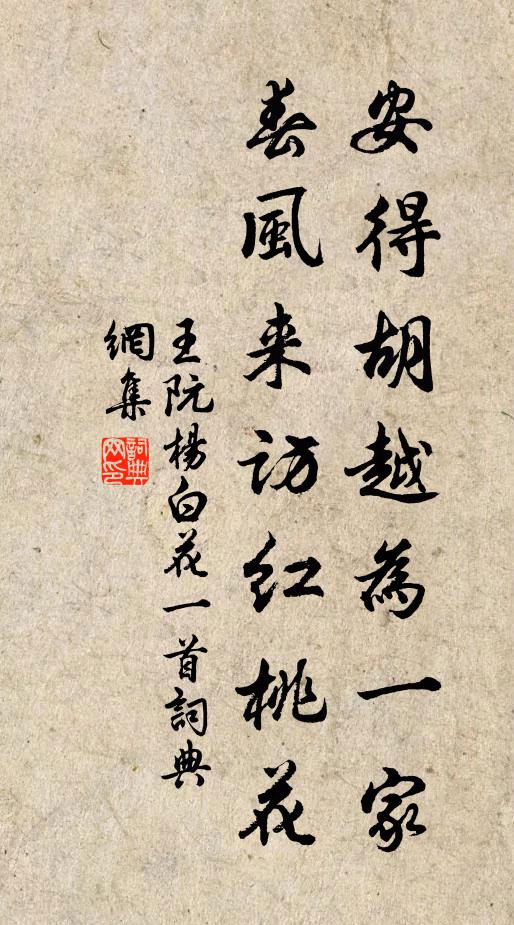 安得胡越為一家
春風来訪紅桃花
王阮楊白花一首詞典
網集
詞典
网印